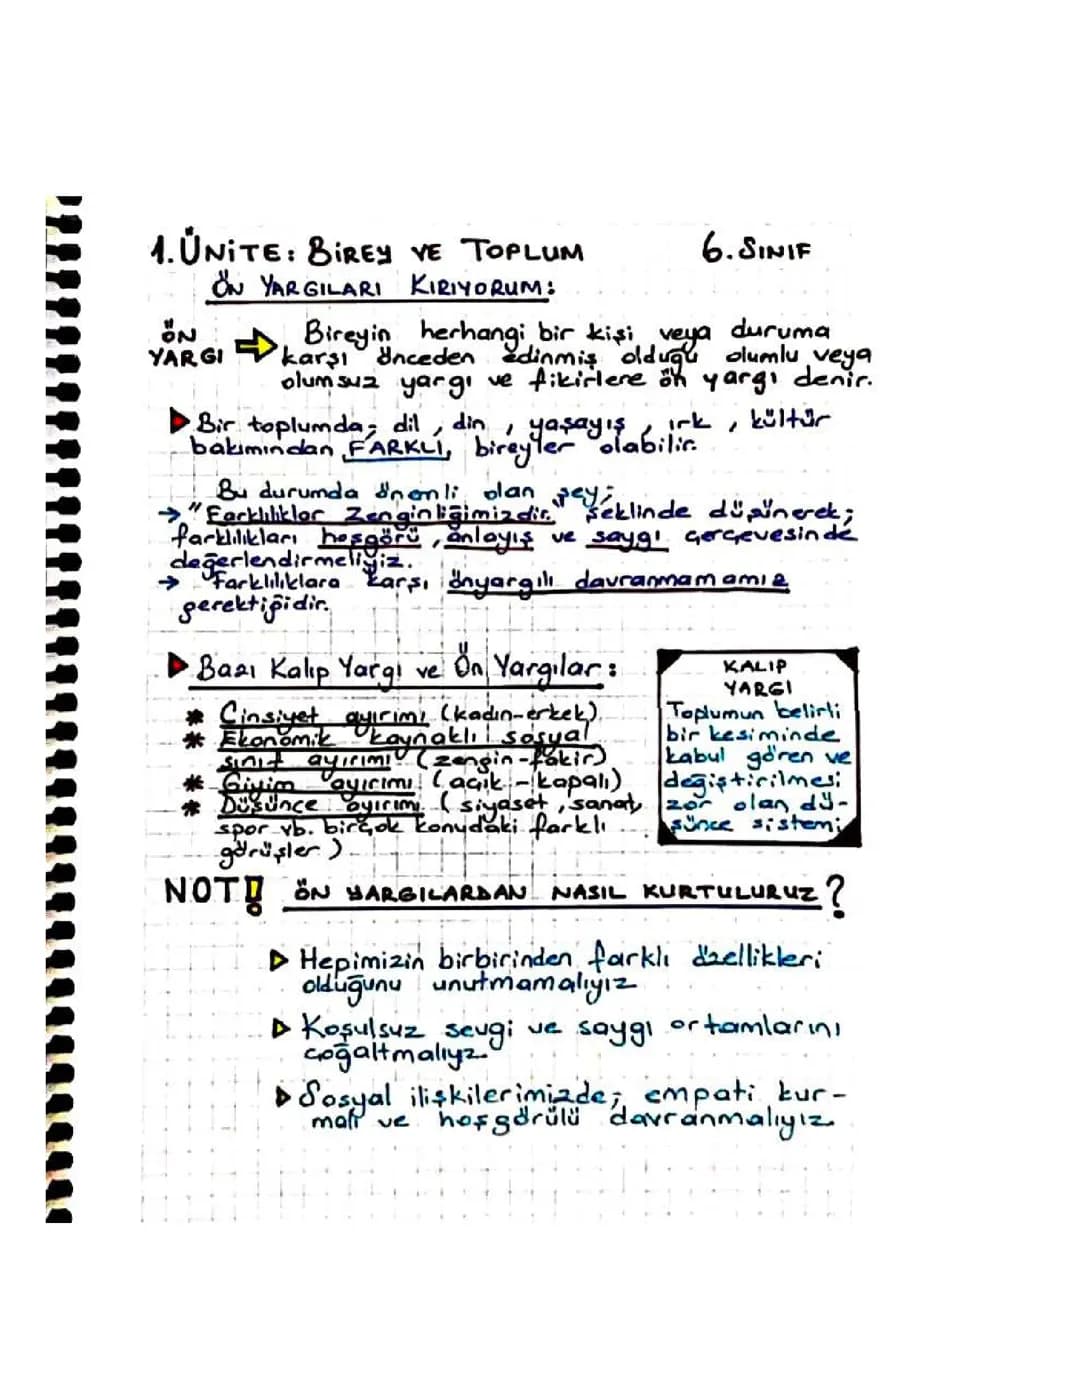 1. ÜNİTE: BİREY VE TOPLUM 6. SINIF
ÖN YARGILARI KIRIYORUM:
ÖN YARGI ⇨ Bireyin herhangi bir kişi veya duruma
karşı önceden edinmiş olduğu olumlu veya
olumsuz yargı ve fikirlere ön yargı denir.
Bir toplumda; dil, din, yaşayış, ırk, kültür
bakımından FARKLI, bireyler olabilir.
Bu durumda önemli olan şey;
→ "Farklılıklar Zenginliğimizdir." şeklinde düşünerek;
farklılıkları hoşgörü, anlayış ve saygı çerçevesinde
değerlendirmeliyiz.
→ Farklılıklara karşı önyargılı davranmamamız
gerektiğidir.
Bazı Kalıp Yargı ve Ön Yargılar:
* Cinsiyet ayırımı (kadın-erkek)
* Ekonomik kaynaklı sosyal
sınıf ayırımı (zengin-fakir)
* Giyim ayırımı (açık-kapalı)
* Düşünce ayırımı (siyaset, sanat,
spor vb. birçok konudaki farklı
görüşler)
KALIP
YARGI
Toplumun belirli
bir kesiminde
kabul gören ve
değiştirilmesi
zor olan dü-
şünce sistemi
NOT!! ÖN YARGILARDAN NASIL KURTULURUZ?
Hepimizin birbirinden farklı özellikleri
olduğunu unutmamalıyız
Koşulsuz sevgi ve saygı ortamlarını
çoğaltmalıyz.
Sosyal ilişkilerimizde; empati kur-
malı ve hoşgörülü davranmalıyız